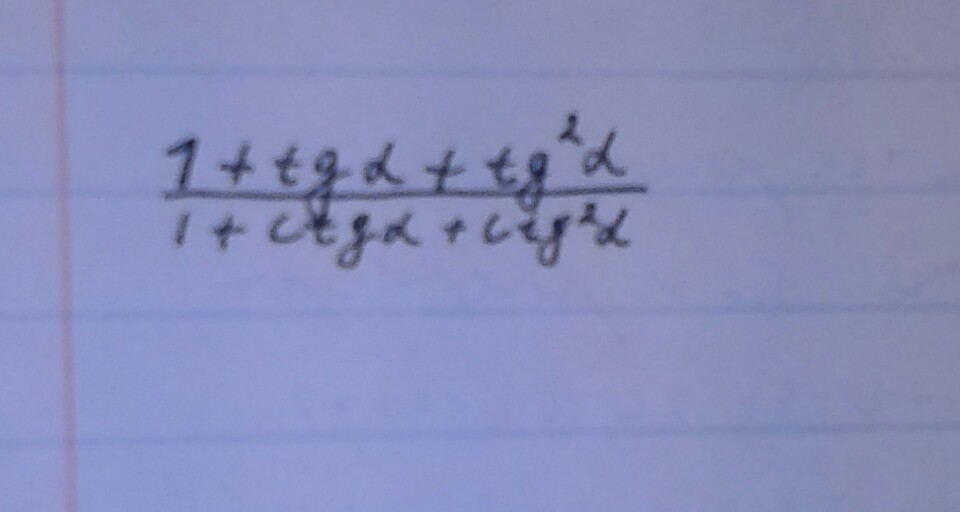 1 + tg α + tg²α
1 + ctgα + ctg²α